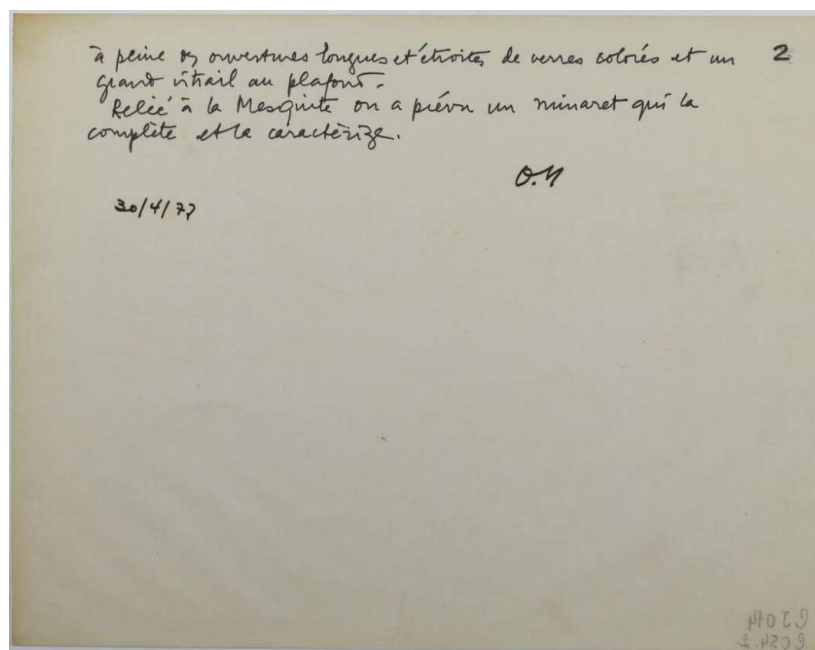 à peine des ouvertures longues et étroites de verres colorés et un 2
grand vitrail au plafond.
Relié à la Mesquite on a prévu un minaret qui la
complète et la caractérize.
O.N
30/4/77